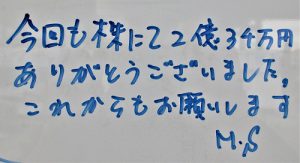 今回も株にて2億34万円
ありがとうございました。
これからもお願いします
M.S